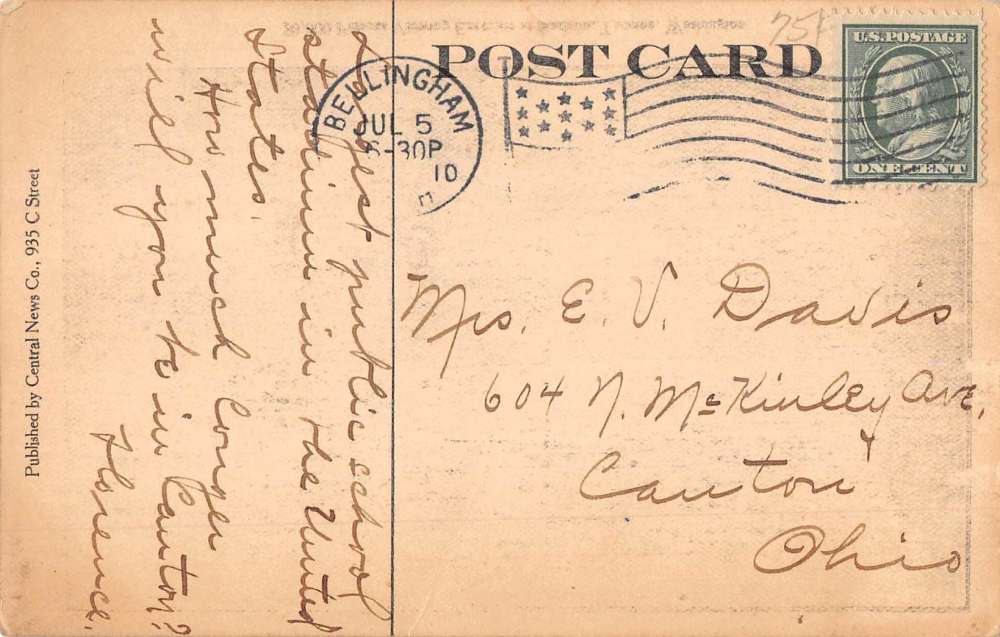 POST CARD
75¢
U.S. POSTAGE
ONE CENT
BELLINGHAM
JUL 5
6-30P
10
Mrs. E. V. Davis
604 N. McKinley Ave.
Canton
Ohio
Largest public school
stadium in the United
States.
How much longer
will you be in Canton?
Florence.
Published by Central News Co., 935 C Street